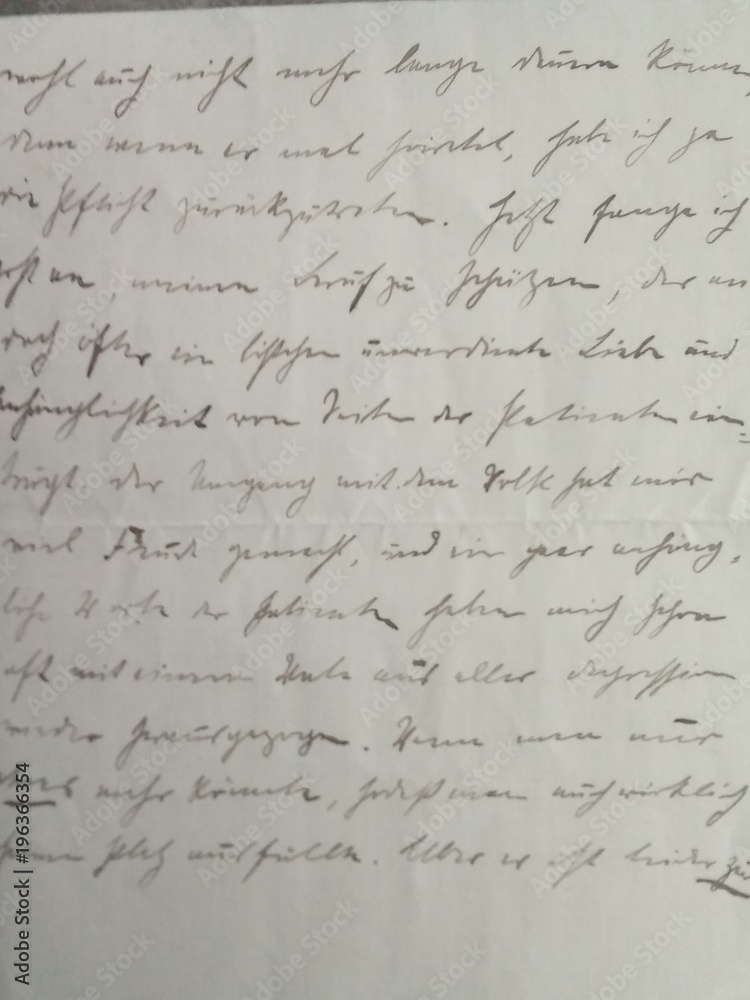 wohl auch nicht mehr lange dauern können,
denn wenn er mal heiratet, habe ich ja
die Pflicht zurückzutreten. Jetzt fange ich
erst an, meinen Beruf zu schätzen, der en
doch öfter ein bißchen unverdiente Liebe und
Anhänglichkeit von Seiten der Patienten ein=
trägt. Der Umgang mit dem Volk hat mir
viel Freude gemacht, und ein paar anhäng=
liche Worte der Patienten haben mich schon
oft mit einem Male aus aller depression
wieder herausgezogen. Wenn man nur
etwas mehr könnte, sodaß man auch wirklich
seinen Platz ausfüllte. Aber es ist leider zu
Adobe Stock | #196366354